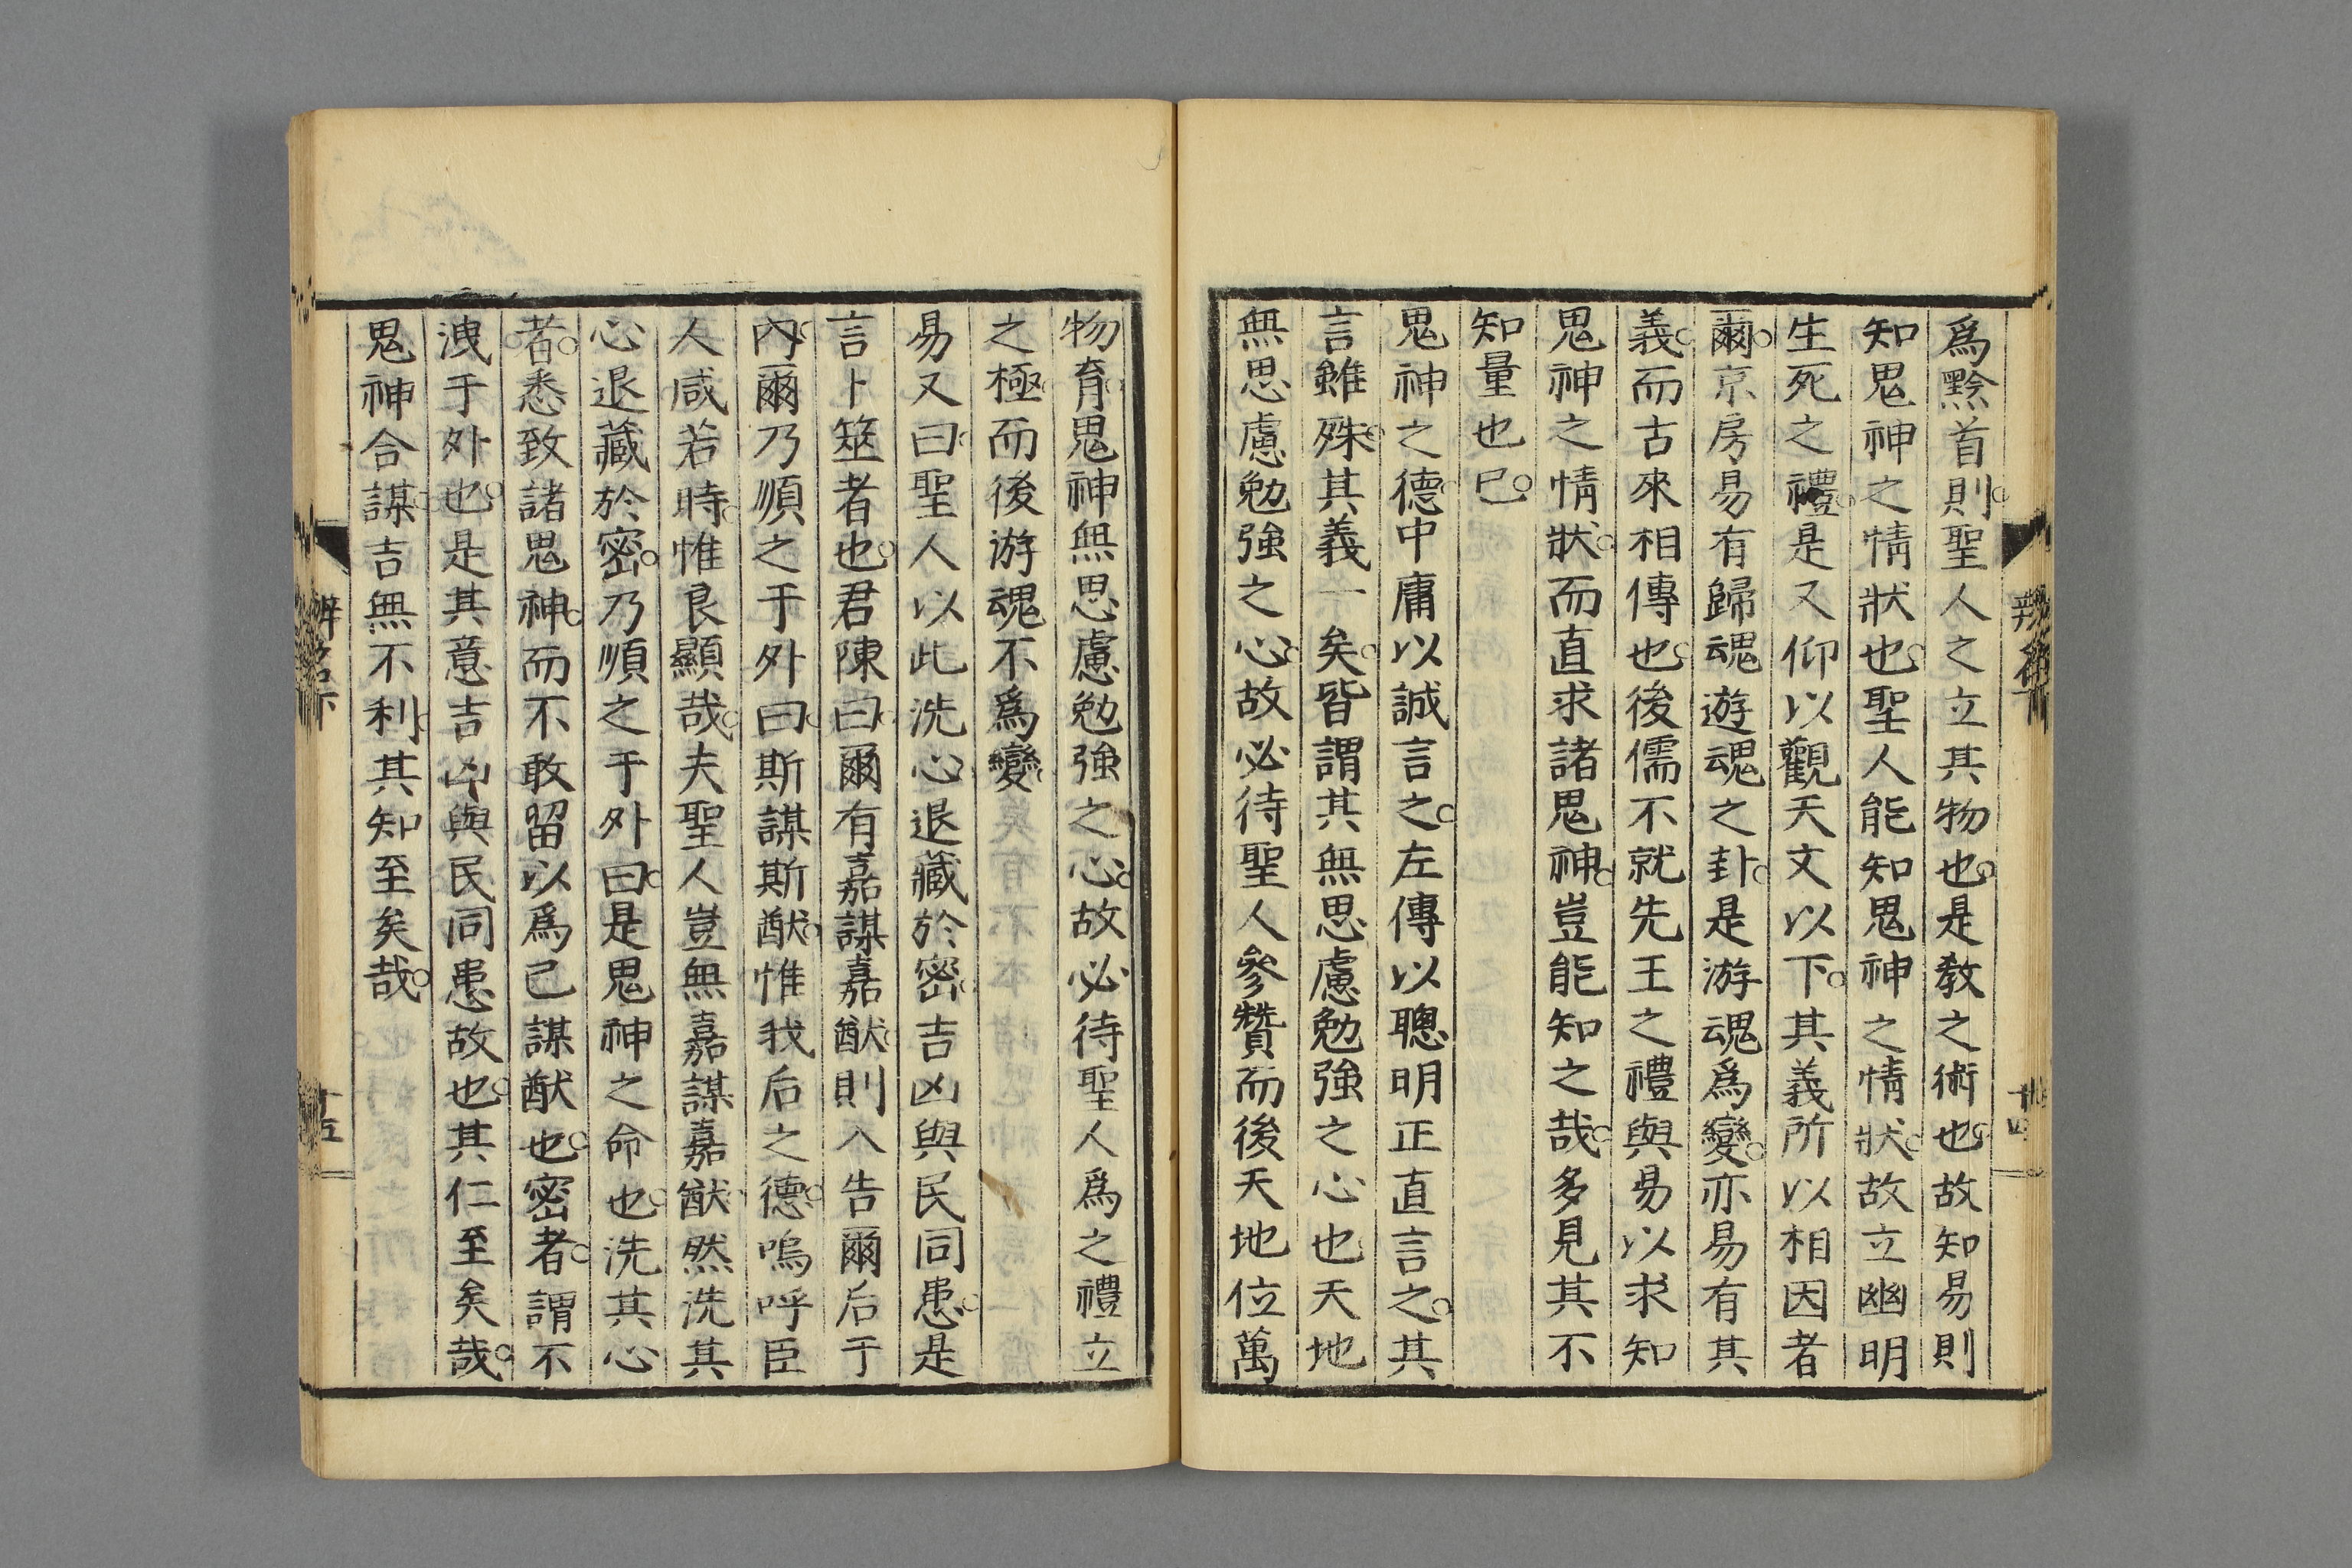 爲黔首則聖人之立其物也是教之術也故知易則
知鬼神之情狀也聖人能知鬼神之情狀故立幽明
生死之禮是又仰以觀天文以下其義所以相因者
爾京房易有歸魂遊魂之卦是游魂爲變亦易有其
義而古來相傳也後儒不就先王之禮與易以求知
鬼神之情狀而直求諸鬼神豈能知之哉多見其不
知量也已
鬼神之德中庸以誠言之左傳以聰明正直言之其
言雖殊其義一矣皆謂其無思慮勉強之心也天地
無思慮勉強之心故必待聖人參贊而後天地位萬
物育鬼神無思慮勉強之心故必待聖人爲之禮立
之極而後游魂不爲變
易又曰聖人以此洗心退藏於密吉凶與民同患是
言卜筮者也君陳曰爾有嘉謀嘉猷則入告爾后于
內爾乃順之于外曰斯謀斯猷惟我后之德嗚呼臣
人咸若時惟良顯哉夫聖人豈無嘉謀嘉猷然洗其
心退藏於密乃順之于外曰是鬼神之命也洗其心
者悉致諸鬼神而不敢留以爲己謀猷也密者謂不
洩于外也是其意吉凶與民同患故也其仁至矣哉
鬼神合謀吉無不利其知至矣哉
辨名下
十五